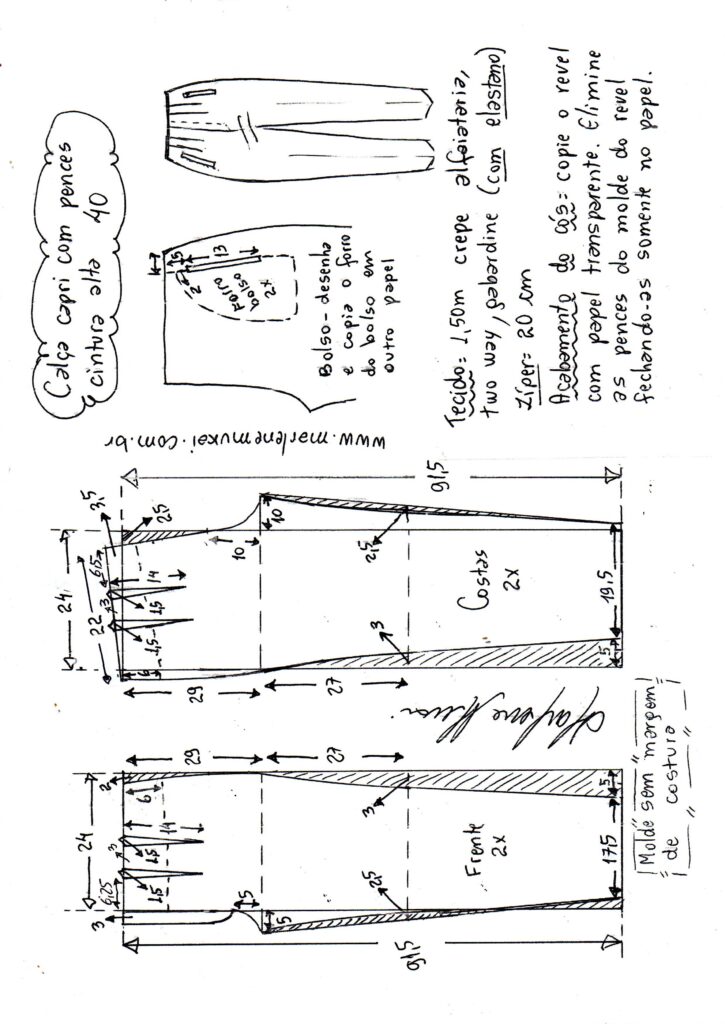 Calça capri com pences
cintura alta 40
1,5
13
2
Forro
bolso
2x
Bolso-desenha
e copia o forro
do bolso em
outro papel
Tecido= 1,50m crepe alfaiataria,
two way, gabardine (com elastano)
Zíper= 20 cm
Acabamento do cós= copie o revel
com papel transparente. Elimine
as pences do molde do revel
fechando-as somente no papel.
www.marlenemukai.com.br
91,5
24
22
6,5
3,5
2,5
3
14
1,5
1,5
6
10
10
29
27
2,5
3
Costas
2x
19,5
5
91,5
24
6,25
3
3
2
6
14
1,5
1,5
29
27
5
5
2,5
3
Frente
2x
17,5
5
Molde sem margem
de costura